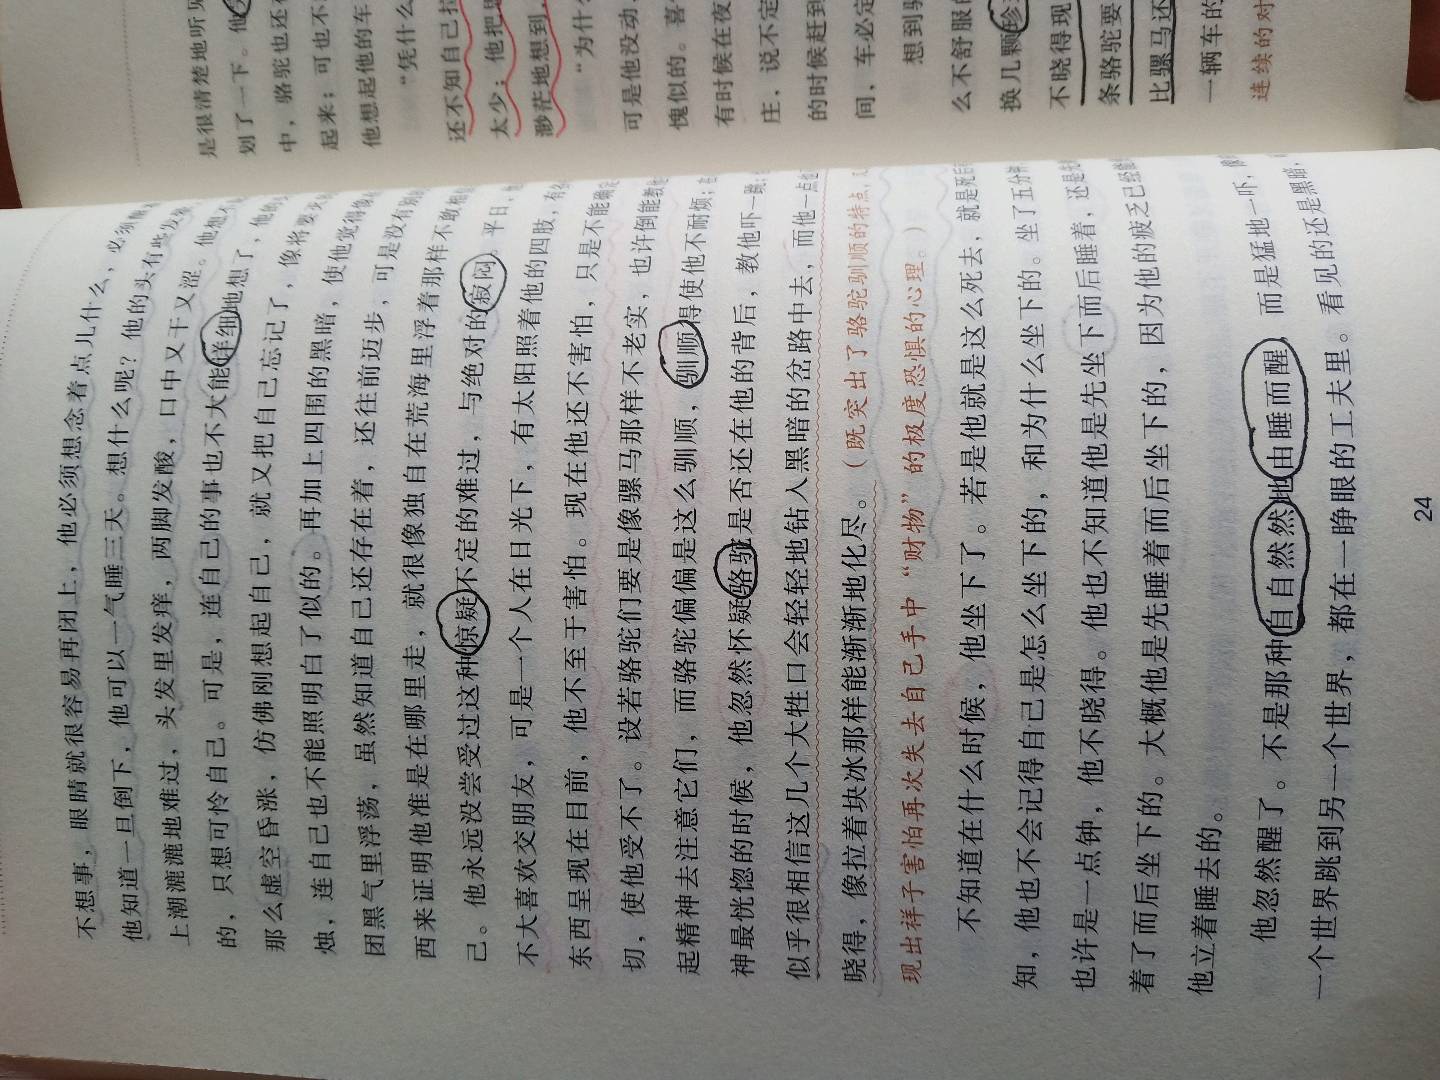 不想事，眼睛就很容易再闭上，他必须想念着点儿什么，必须醒
他知道一旦倒下，他可以一气睡三天。想什么呢？他的头有些发
上潮漉漉地难过，头发里发痒，两脚发酸，口中又干又涩。他想
的，只想可怜自己。可是，连自己的事也不大能详细地想了，他的
那么虚空昏涨，仿佛刚想起自己，就又把自己忘记了，像将要
烛，连自己也不能照明白了似的。再加上四围的黑暗，使他觉得像
团黑气里浮荡，虽然知道自己还存在着，还往前迈步，可是没有
西来证明他准是在哪里走，就很像独自在荒海里浮着那样不敢相
己。他永远没尝受过这种惊疑不定的难过，与绝对的寂闷。平日，
不大喜欢交朋友，可是一个人在日光下，有太阳照着他的四肢，有
东西呈现在目前，他不至于害怕。现在他还不害怕，只是不能确定
切，使他受不了。设若骆驼们要是像骡马那样不老实，也许倒能教他
起精神去注意它们，而骆驼偏偏是这么驯顺，驯顺得使他不耐烦；
神最恍惚的时候，他忽然怀疑骆驼是否还在他的背后，教他吓一跳；
似乎很相信这几个大牲口会轻轻地钻入黑暗的岔路中去，而他一点
晓得，像拉着块冰那样能渐渐地化尽。（既突出了骆驼驯顺的特点，
现出祥子害怕再次失去自己手中“财物”的极度恐惧的心理。）
不知道在什么时候，他坐下了。若是他就是这么死去，就是死后
知，他也不会记得自己是怎么坐下的，和为什么坐下的。坐了五分钟，
也许是一点钟，他不晓得。他也不知道他是先坐下而后睡着，还是先
着了而后坐下的。大概他是先睡着而后坐下的，因为他的疲乏已经能
他立着睡去的。
他忽然醒了。不是那种自自然然地由睡而醒，而是猛地一吓，像
一个世界跳到另一个世界，都在一睁眼的工夫里。看见的还是黑暗，
24
是很清楚地听见
划了一下。他
中，骆驼也还
起来；可也不
他想起他的车
“凭什么
还不知自己
太少；他把
渺茫地想到，
“为什么
可是他没动
愧似的。喜
有时候在夜
庄，说不定
的时候赶到
间，车必定
想到
么不舒服
换几颗珍
不晓得现
条骆驼要
比骡马还
一辆车的
连续的对